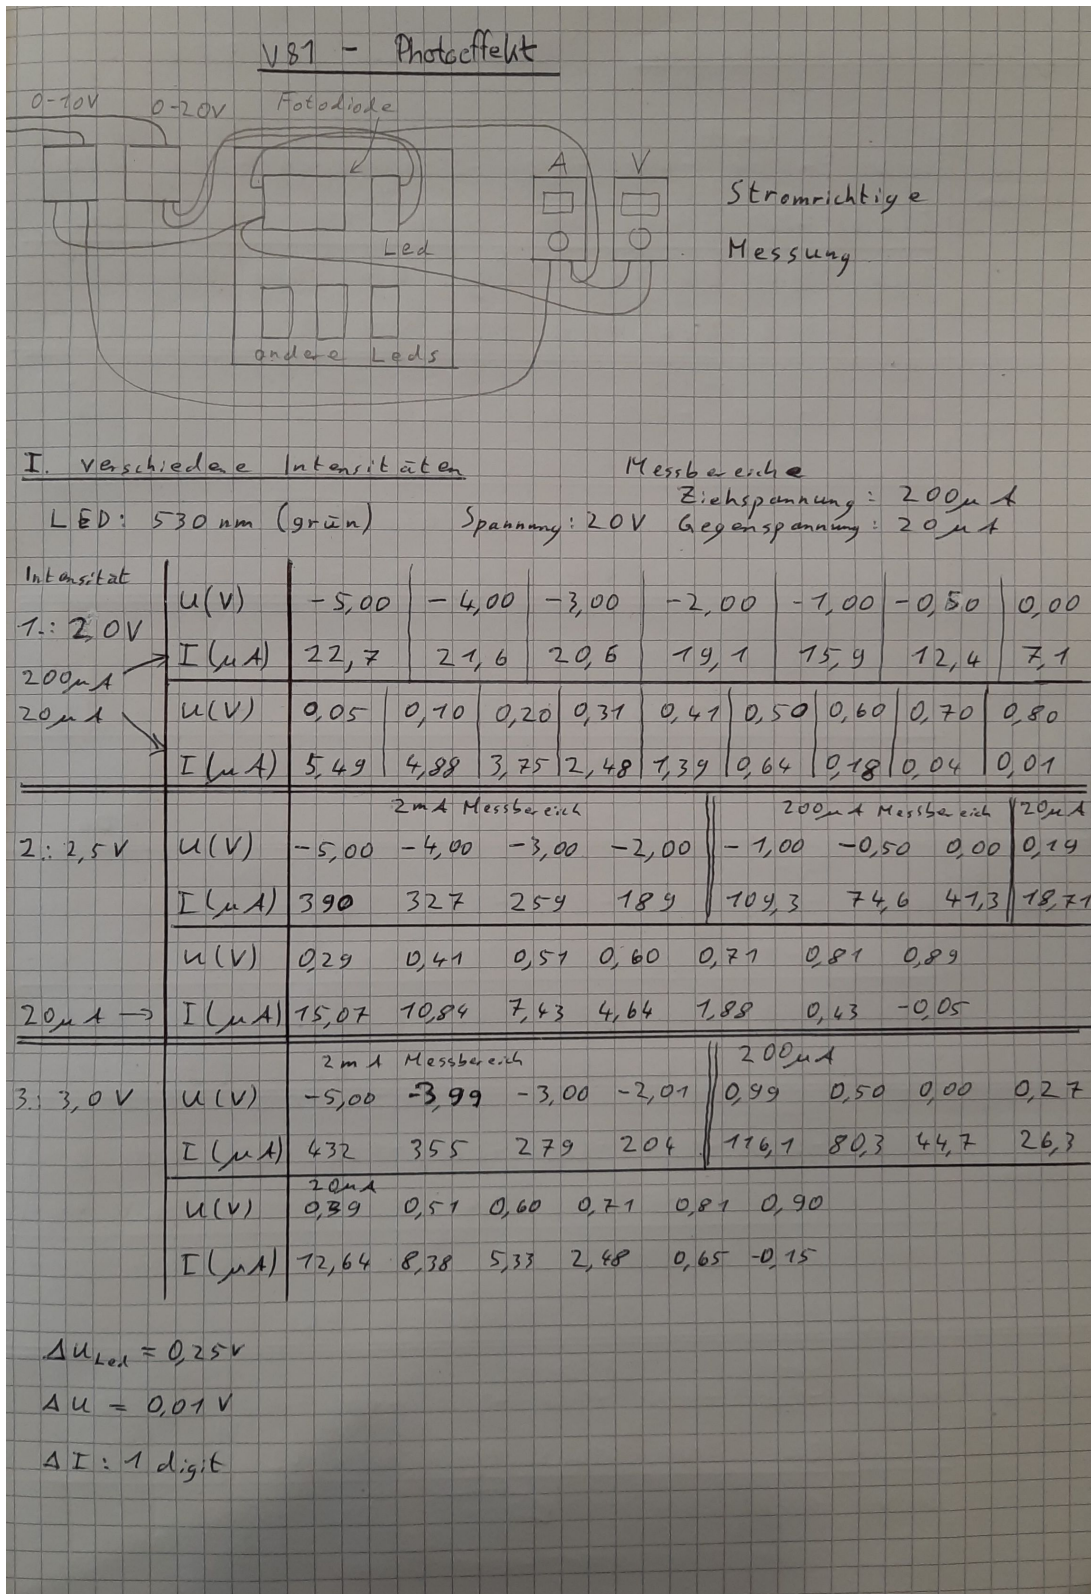 V81 - Photoeffekt
0-10V 0-20V Fotodiode
A V
Stromrichtige
Led
Messung
andere Leds
I. verschiedene Intensitäten Messbereiche
Ziehspannung: 200µA
LED: 530 nm (grün) Spannung: 20V Gegenspannung: 20µA
Intensität
U(V) -5,00 -4,00 -3,00 -2,00 -1,00 -0,50 0,00
1.: 2,0V
I(µA) 22,7 21,6 20,6 19,1 15,9 12,4 7,1
200µA
20µA U(V) 0,05 0,10 0,20 0,31 0,41 0,50 0,60 0,70 0,80
I(µA) 5,49 4,88 3,75 2,48 1,39 0,64 0,18 0,04 0,01
2mA Messbereich 200µA Messbereich 20µA
2.: 2,5V U(V) -5,00 -4,00 -3,00 -2,00 -1,00 -0,50 0,00 0,19
I(µA) 390 327 259 189 109,3 74,6 41,3 18,71
U(V) 0,29 0,41 0,51 0,60 0,71 0,81 0,89
20µA → I(µA) 15,07 10,84 7,43 4,64 1,88 0,43 -0,05
2mA Messbereich 200µA
3.: 3,0V U(V) -5,00 -3,99 -3,00 -2,01 0,99 0,50 0,00 0,27
I(µA) 432 355 279 204 116,1 80,3 44,7 26,3
20µA
U(V) 0,39 0,51 0,60 0,71 0,81 0,90
I(µA) 12,64 8,38 5,33 2,48 0,65 -0,15
ΔU_Led = 0,25V
ΔU = 0,01V
ΔI: 1 digit